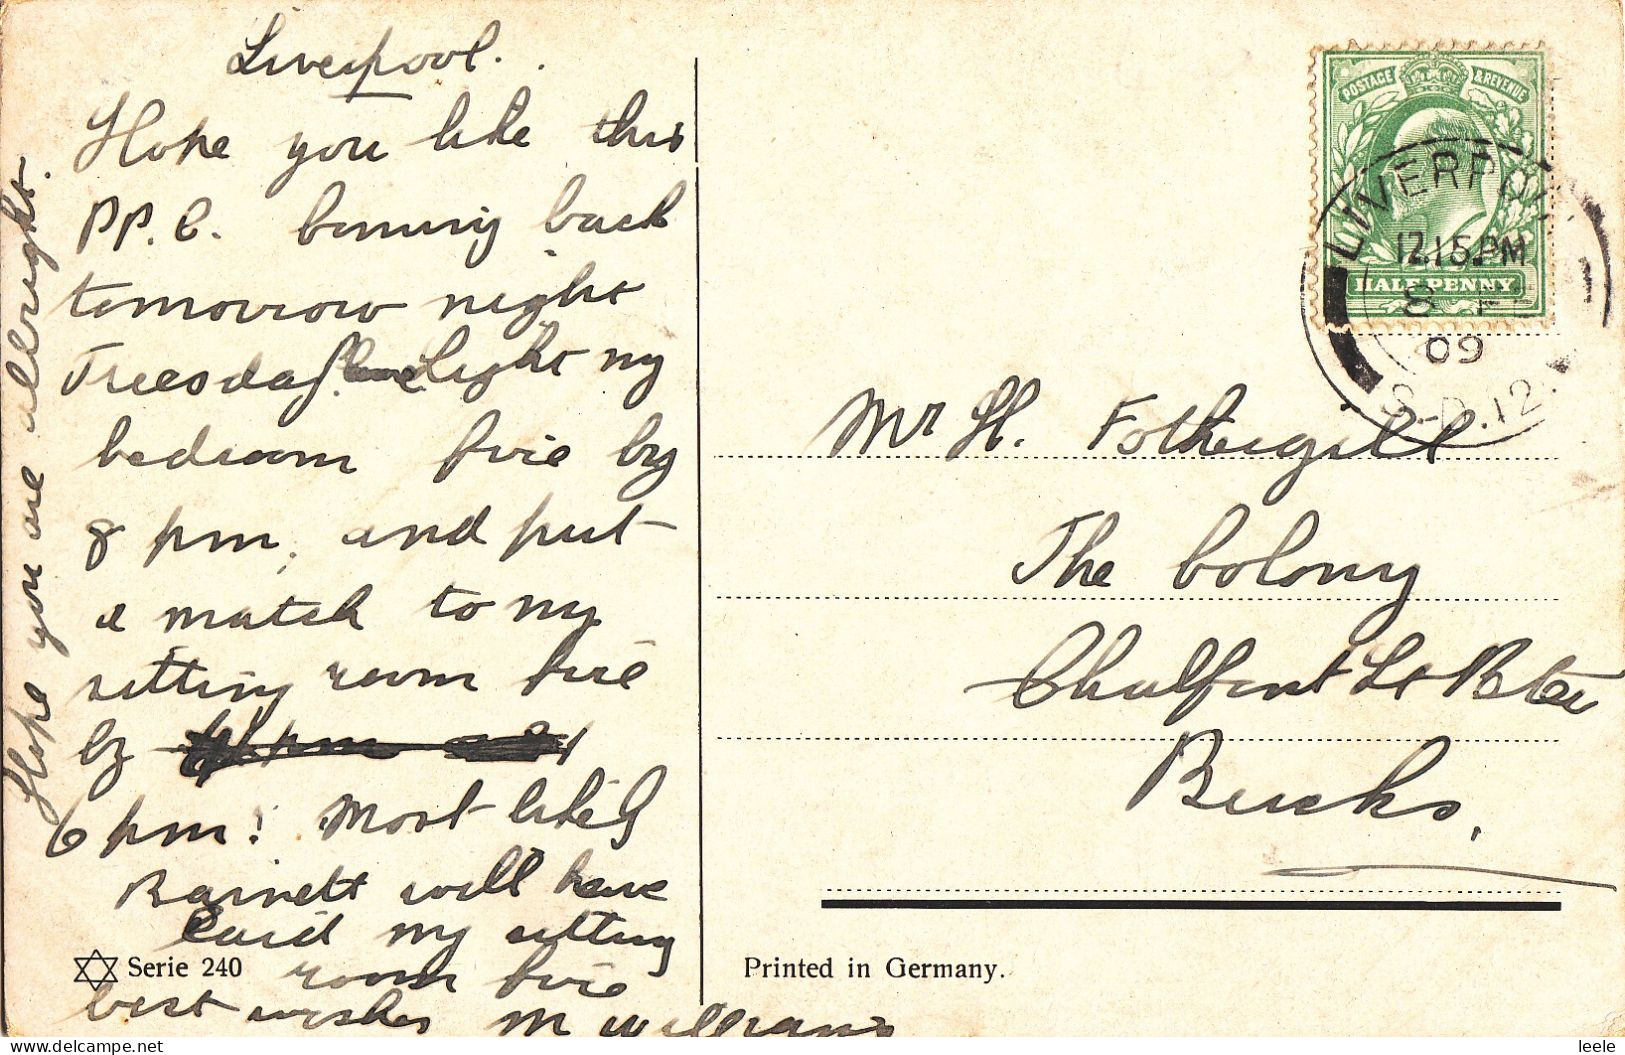 Liverpool.
Hope you like this
P.P.C. Coming back
tomorrow night
Tuesday. Light my
bedroom fire by
8 pm, and put
a match to my
sitting room fire
by
6 pm! Most likely
Barnett will have
laid my sitting
room fire
best wishes M Williams
Hope you are allright.
Serie 240
Printed in Germany.
POSTAGE & REVENUE
HALF PENNY
LIVERPOOL
12.15PM
8 FE
09
S.D.12.
Mr H. Fothergill
The Colony
Chalfont St Peter
Bucks.
delcampe.net
leele